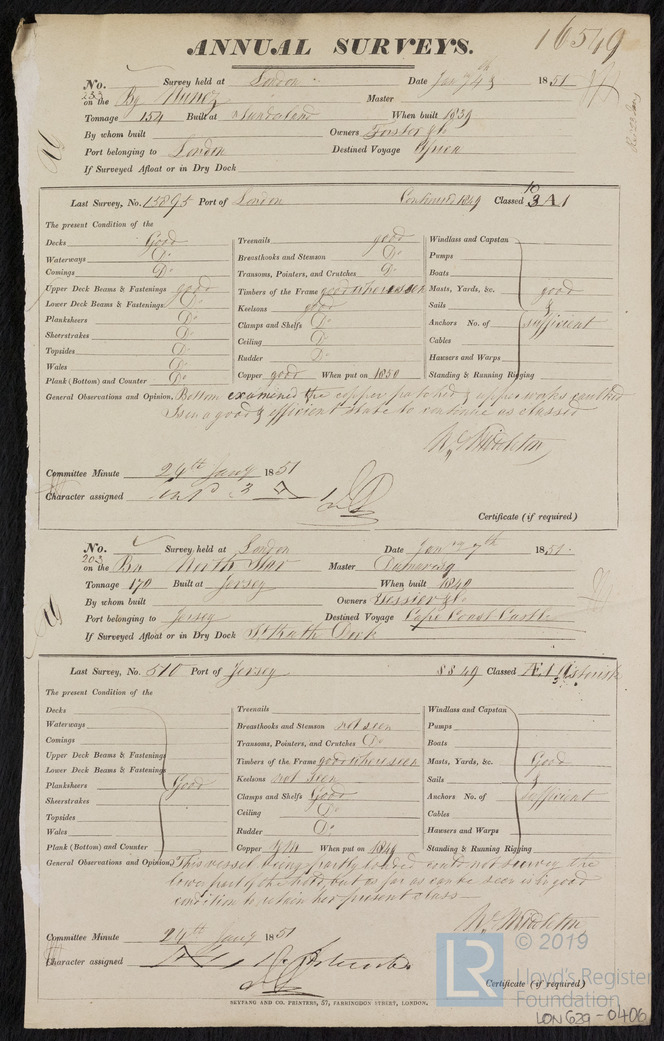 16549
ANNUAL SURVEYS.
No. Survey held at London Date Jany 1851
253
on the Bg Master
Tonnage 154 Built at Sunderland When built 1839
By whom built Owners Forster & Co
Port belonging to London Destined Voyage
If Surveyed Afloat or in Dry Dock
Last Survey, No. 15895 Port of London Continued 1849 Classed 10 3 A 1
The present Condition of the
Decks Good
Waterways Do
Comings Do
Upper Deck Beams & Fastenings good
Lower Deck Beams & Fastenings Do
Planksheers Do
Sheerstrakes Do
Topsides Do
Wales Do
Plank (Bottom) and Counter Do
Treenails good
Breasthooks and Stemson Do
Transoms, Pointers, and Crutches Do
Timbers of the Frame good where seen
Keelsons good
Clamps and Shelfs Do
Ceiling Do
Rudder Do
Copper good When put on 1850
Windlass and Capstan
Pumps
Boats
Masts, Yards, &c. good
Sails &
Anchors No. of sufficient
Cables
Hawsers and Warps
Standing & Running Rigging
General Observations and Opinion, Bottom examined the copper patched & upperworks caulked
Is in a good & efficient state to continue as classed
Wm Middleton
Committee Minute 24th Jany 1851
Character assigned
Certificate (if required)
No. Survey held at London Date Jany 7th 1851
203
on the Bn North Star Master Dumaresq
Tonnage 170 Built at Jersey When built 1840
By whom built Owners Tessier & Co
Port belonging to Jersey Destined Voyage Cape Coast Castle
If Surveyed Afloat or in Dry Dock St Kath Dock
Last Survey, No. 510 Port of Jersey SS 49 Classed Æ 1
The present Condition of the
Decks
Waterways
Comings
Upper Deck Beams & Fastenings
Lower Deck Beams & Fastenings
Planksheers Good
Sheerstrakes
Topsides
Wales
Plank (Bottom) and Counter
Treenails
Breasthooks and Stemson not seen
Transoms, Pointers, and Crutches Do
Timbers of the Frame good where seen
Keelsons not seen
Clamps and Shelfs Good
Ceiling Do
Rudder Do
Copper When put on 1849
Windlass and Capstan
Pumps
Boats
Masts, Yards, &c. Good
Sails &
Anchors No. of sufficient
Cables
Hawsers and Warps
Standing & Running Rigging
General Observations and Opinion, This vessel being partly loaded could not survey the
lower part of the hold, but as far as can be seen is in good
condition to retain her present class
Wm Middleton
Committee Minute 24th Jany 1851
Character assigned
Certificate (if required)
SKYFANG AND CO. PRINTERS, 57, FARRINGDON STREET, LONDON.
LR © 2019
Lloyd's Register
Foundation
LON 639-0406